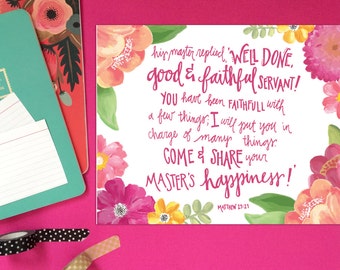 his master replied, "WELL DONE,
good & faithful SERVANT!
YOU have been FAITHFULL with
a few things; I will put you in
charge of many things.
COME & SHARE your
MASTER'S happiness!"
MATTHEW 25:23